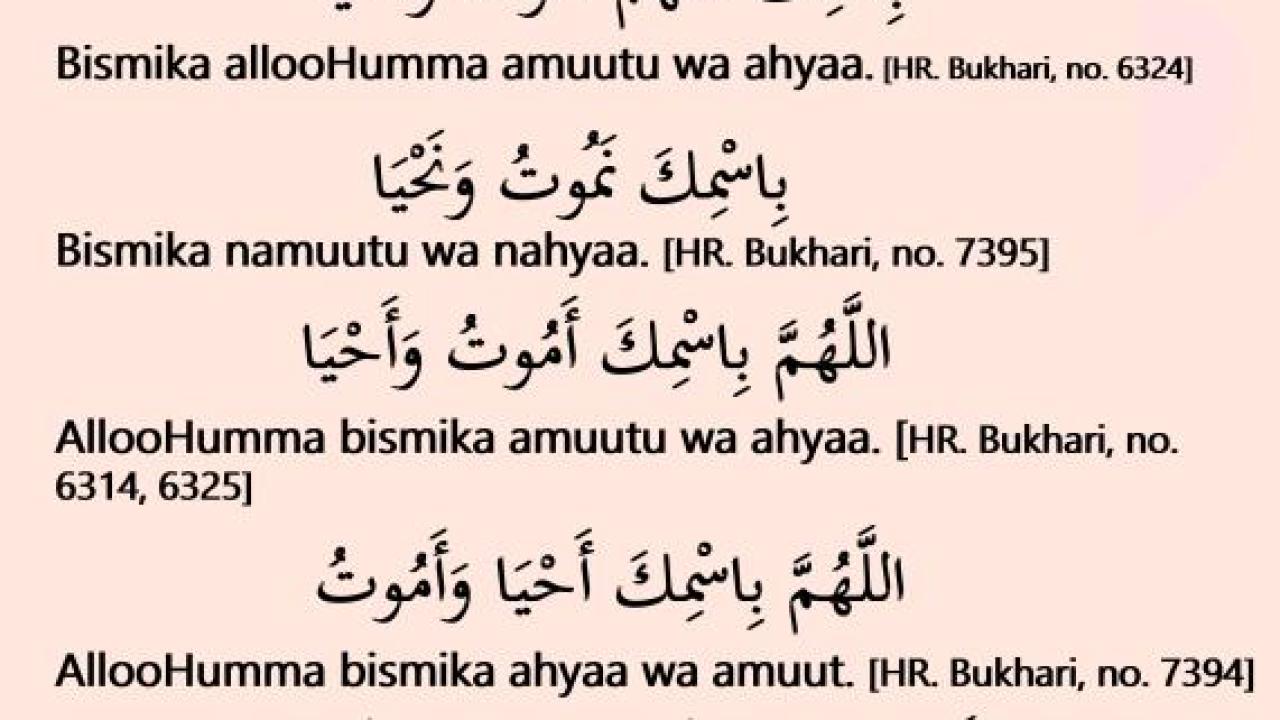 Bismika allooHumma amuutu wa ahyaa. [HR. Bukhari, no. 6324]
بِاسْمِكَ نَمُوتُ وَنَحْيَا
Bismika namuutu wa nahyaa. [HR. Bukhari, no. 7395]
اللَّهُمَّ بِاسْمِكَ أَمُوتُ وَأَحْيَا
AllooHumma bismika amuutu wa ahyaa. [HR. Bukhari, no.
6314, 6325]
اللَّهُمَّ بِاسْمِكَ أَحْيَا وَأَمُوتُ
AllooHumma bismika ahyaa wa amuut. [HR. Bukhari, no. 7394]